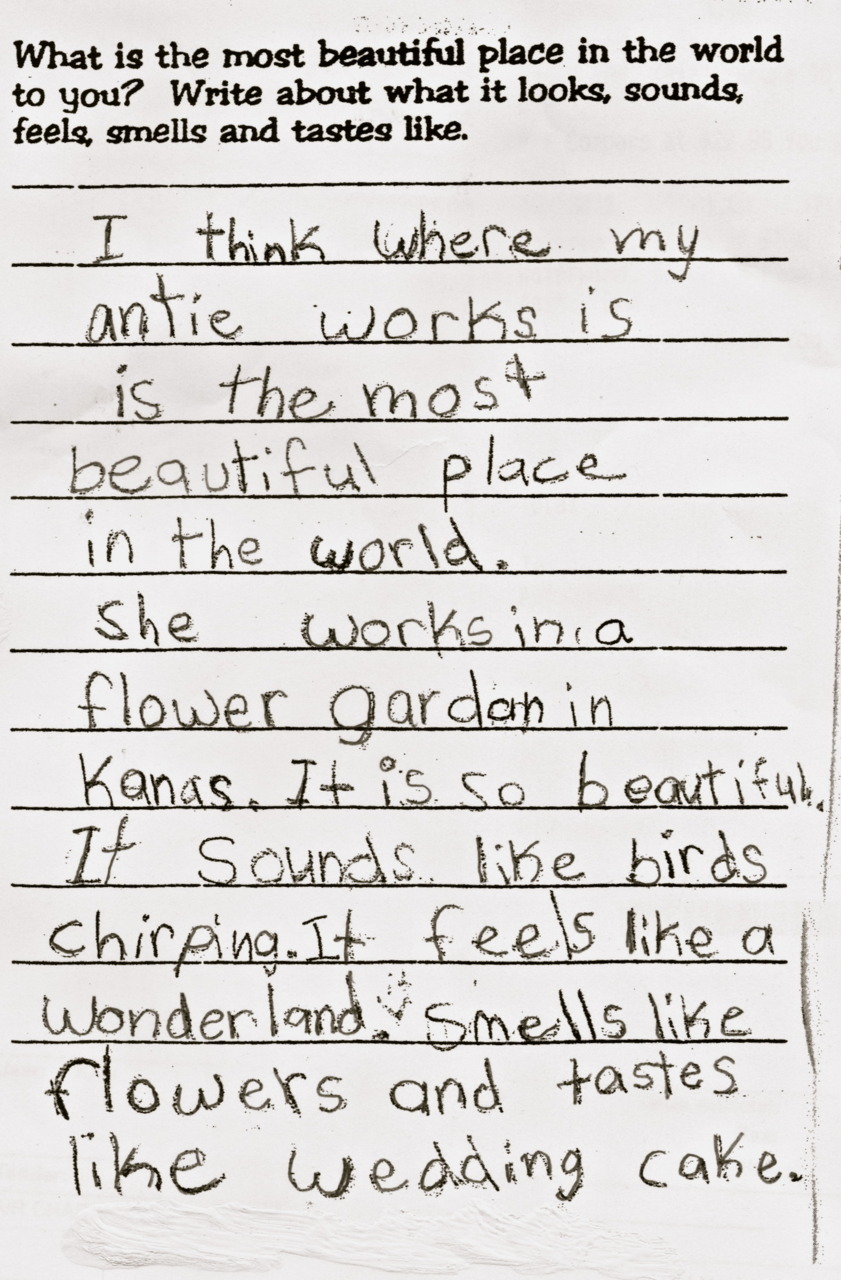 What is the most beautiful place in the world
to you? Write about what it looks, sounds,
feels, smells and tastes like.
I think where my
antie works is
is the most
beautiful place
in the world.
She works in a
flower gardan in
Kanas. It is so beautiful.
It Sounds like birds
chirping. It feels like a
wonderland. Smells like
flowers and tastes
like wedding cake.